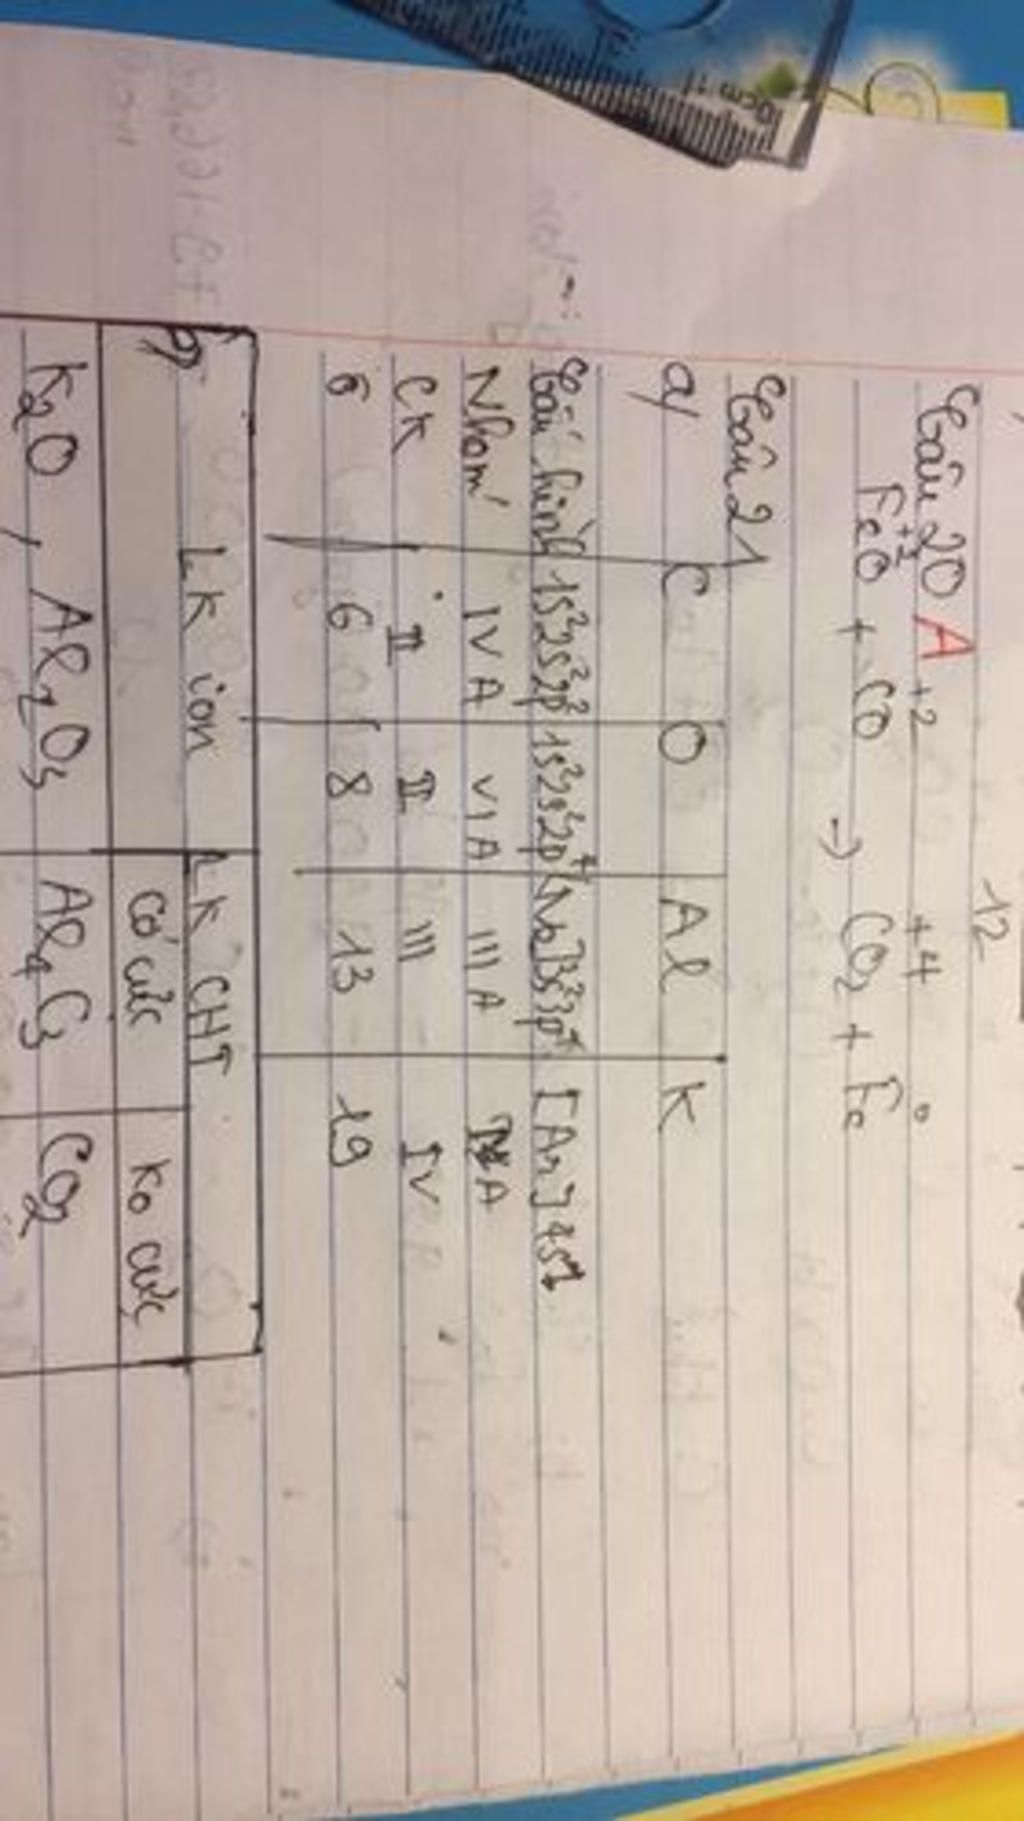 12
Câu 20 A +2 +4 0
+2
FeO + CO → CO2 + Fe
Câu 21
a/ C O Al K
Cấu hình 1s²2s²2p² 1s²2s²2p⁴ [Ne]3s²3p¹ [Ar]4s1
Nhóm IVA VIA IIIA IA
CK II II III IV
Ô 6 8 13 19
b) LK ion LK CHT
Có cực Ko cực
K2O, Al2O3 Al4C3 CO2
0cm 1